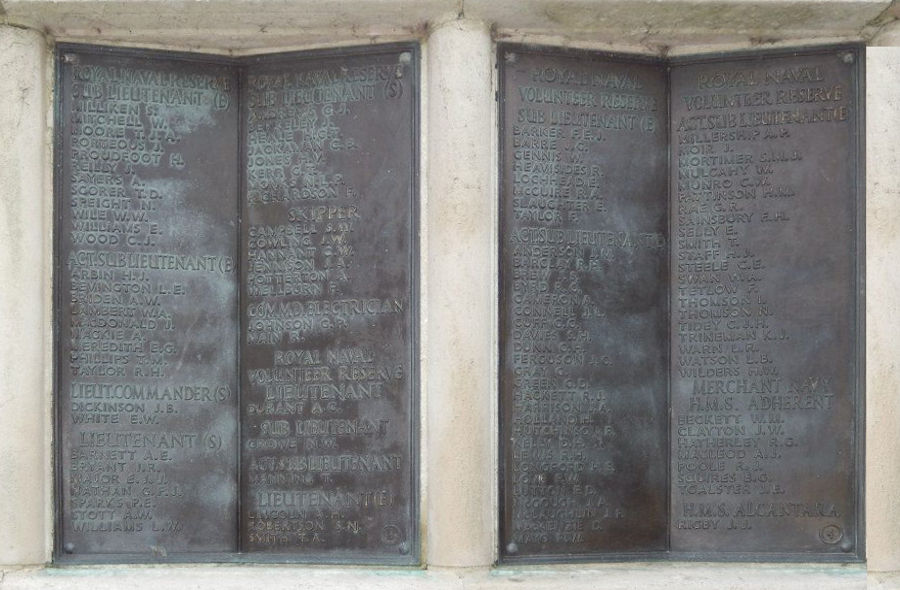 ROYAL NAVAL RESERVE
SUB LIEUTENANT (E)
MILLIKEN S.
MITCHELL W.
MOORE
PORTEOUS J.
PROUDFOOT H.
REILLY J.
SAYERS A.
SCORER T.D.
SPEIGHT N.
WILE W.W.
WILLIAMS E.
WOOD C.J.
ACT.SUB LIEUTENANT (E)
ARBIN H.J.
BEVINGTON L.E.
BRIDEN A.W.
LAMBERT W.A.
MACDONALD J.
MACKIE A.
MEREDITH E.G.
PHILLIPS T.W.
TAYLOR R.H.
LIEUT.COMMANDER (S)
DICKINSON J.B.
WHITE E.W.
LIEUTENANT (S)
BARNETT A.E.
BRYANT J.R.
MAJOR E.J.J.
NATHAN G.F.J.
SPARKS P.E.
STOTT A.W.
WILLIAMS L.W.
ROYAL NAVAL RESERVE
SUB LIEUTENANT (S)
JONES H.V.
KERR
RICHARDSON F.
SKIPPER
CAMPBELL S.W.
COWLING J.W.
HANNANT G.W.
JENNISON J.A.
WELLBURN F.
COMMD ELECTRICIAN
JOHNSON G.P.
MAIN R.
ROYAL NAVAL
VOLUNTEER RESERVE
LIEUTENANT
DURANT A.C.
SUB LIEUTENANT
CROWE N.W.
ACT.SUB LIEUTENANT
MANNING T.
LIEUTENANT (E)
LINCOLN J.H.
ROBERTSON S.N.
SMITH T.A.
ROYAL NAVAL
VOLUNTEER RESERVE
SUB LIEUTENANT (E)
BARKER F.E.J.
BARRE J.G.
GENNIS W.
HEAVISIDES R.
LOCKE D.E.
McGUIRE R.A.
SLAUGHTER E.
TAYLOR F.
ACT.SUB LIEUTENANT (E)
ANDERSON I.M.
BARCLAY R.F.
BYRD F.G.
CAMERON A.
CONNELL J.L.
CUFF G.G.
DAVIES C.H.
DUNN G.T.
FERGUSON J.G.
GRAY G.
GREEN G.D.
HACKETT R.J.
HARRISON J.A.
HOLLAND H.
HUTCHISON R.F.
KELLY D.C.
LEWIS R.H.
LONGFORD H.E.
LOVE R.W.
McLAUGHLIN J.F.
MACKENZIE D.
MAYS H.W.
ROYAL NAVAL
VOLUNTEER RESERVE
ACT.SUB LIEUTENANT (E)
MILLERSHIP A.P.
MOIR J.
MORTIMER S.H.J.
MULCAHY W.
MUNRO C.W.
PATTINSON H.M.
RAE G.R.
SAINSBURY F.H.
SELLY E.
SMITH T.
STAFF H.J.
STEELE C.E.
SWAN W.A.
TETLOW F.
THOMSON I.
THOMSON N.
TIDEY C.J.H.
TRINEMAN K.J.
WARN L.R.
WATSON L.B.
WILDERS H.W.
MERCHANT NAVY
H.M.S. ADHERENT
BECKETT W.M.
CLAYTON J.W.
HATHERLEY R.G.
MACLEOD A.J.
POOLE R.J.
SQUIRES B.G.
TOALSTER J.E.
H.M.S. ALCANTARA
RIGBY J.J.